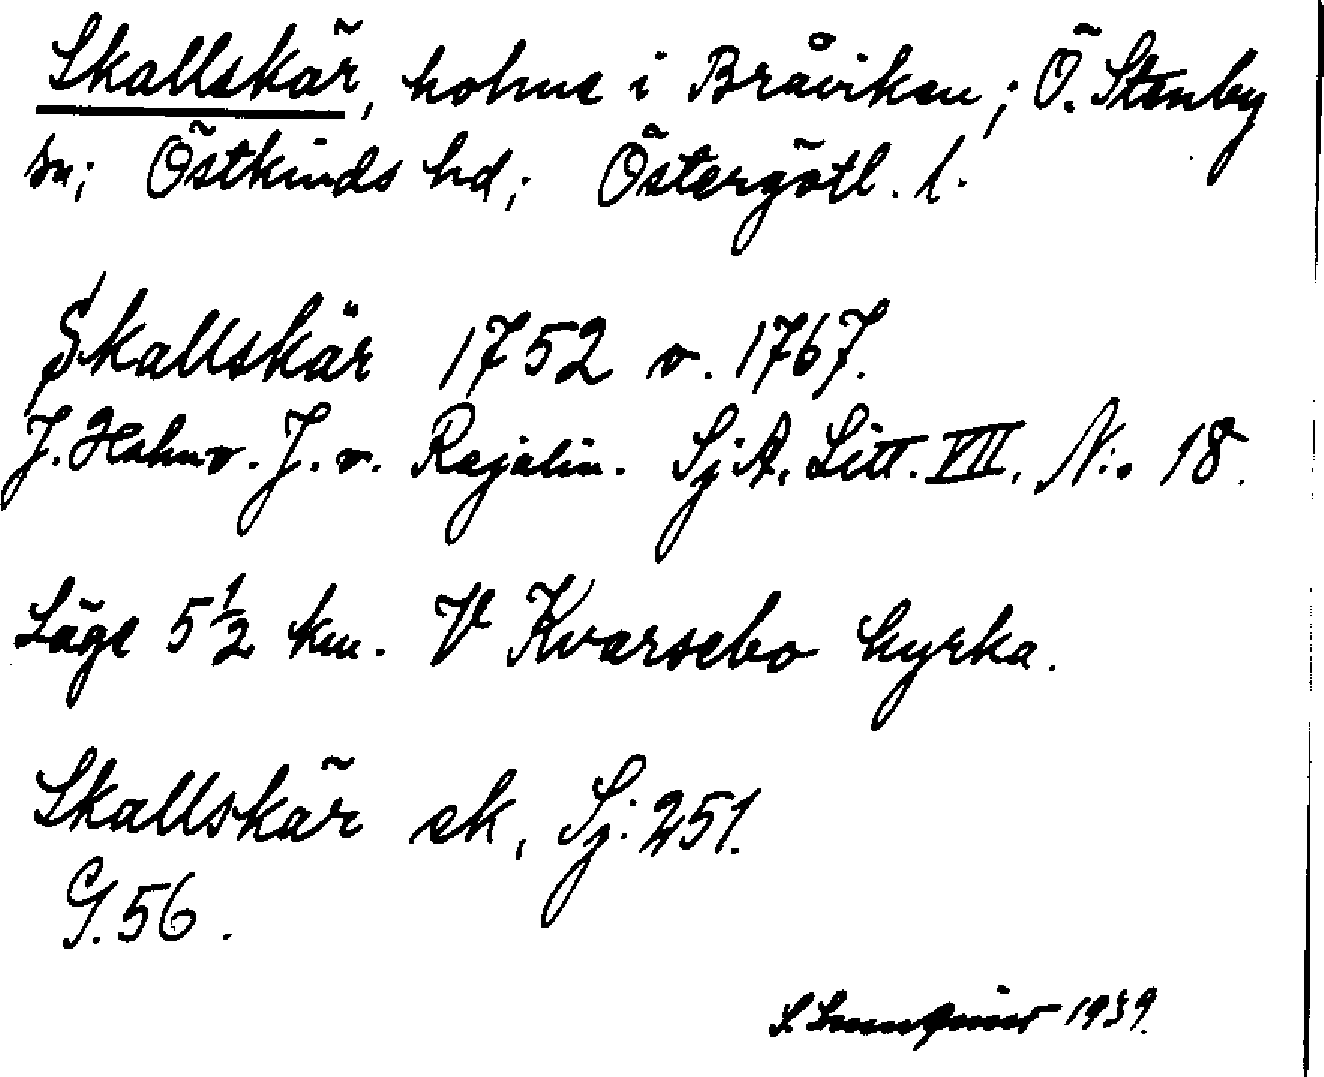 Skallskär, holme i Bråviken; Ö. Stenby
sn; Östkinds hd; Östergötl. l.
Skallskär 1752 o. 1767.
J. Hahn o. J. v. Rajalin. Sj.A. Litt. VII. No 18.
Läge 5½ km. V Kvarsebo kyrka.
Skallskär ek, Sj: 251.
G. 56.
1939.